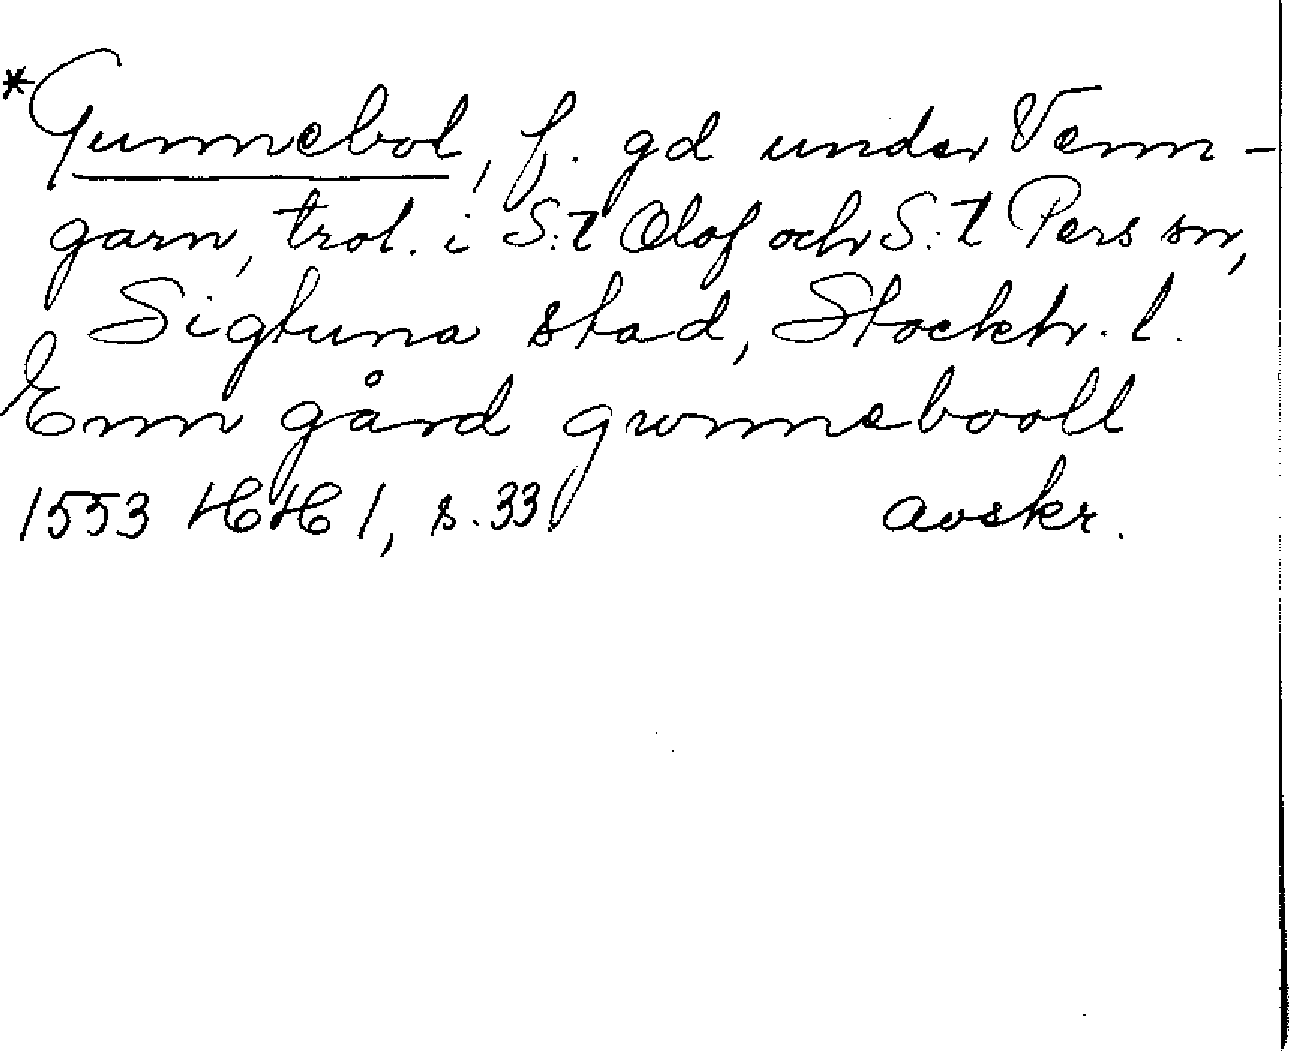 *Gunnebol, f. gd under Venn-
garn, trol. i S:t Olof och S:t Pers sn,
Sigtuna stad, Stockh. l.
Enn gård gunnebooll
1553 HH 1, s. 33 avskr.